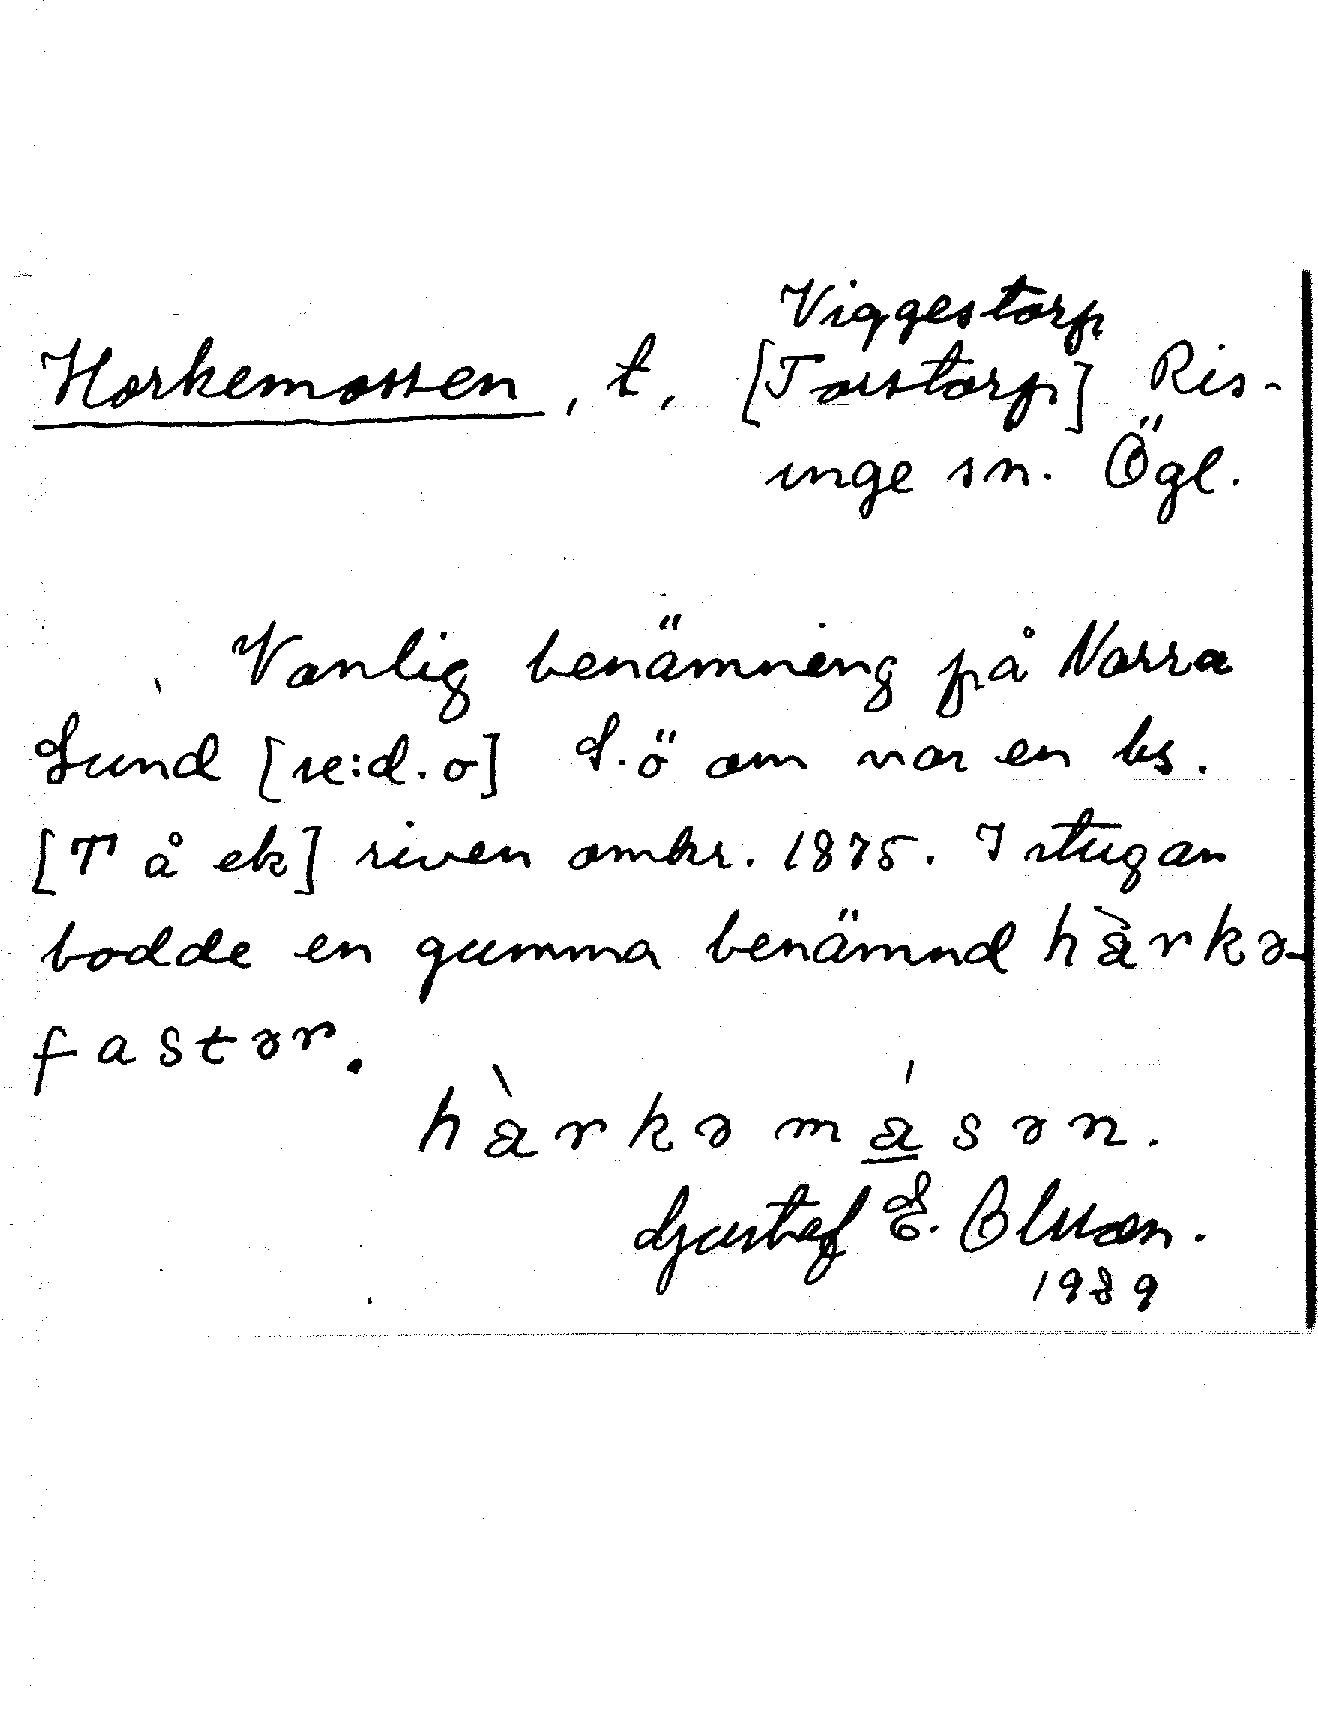 Viggestorp
Horkemossen, t, [Torstorp] Ris-
inge sn. Ögl.
Vanlig benämning på Norra
Lund [se:d.o] S.ö om var en bs.
[T å ek] riven omkr. 1875. I stugan
bodde en gumma benämnd hàrkə-
fastər.
hàrkəmásən.
Gustaf E. Olsson.
1939